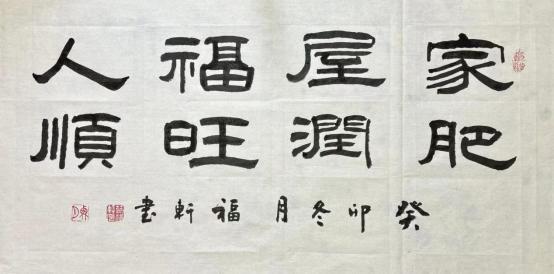 家肥
屋潤
福旺
人順
癸卯冬月福軒書